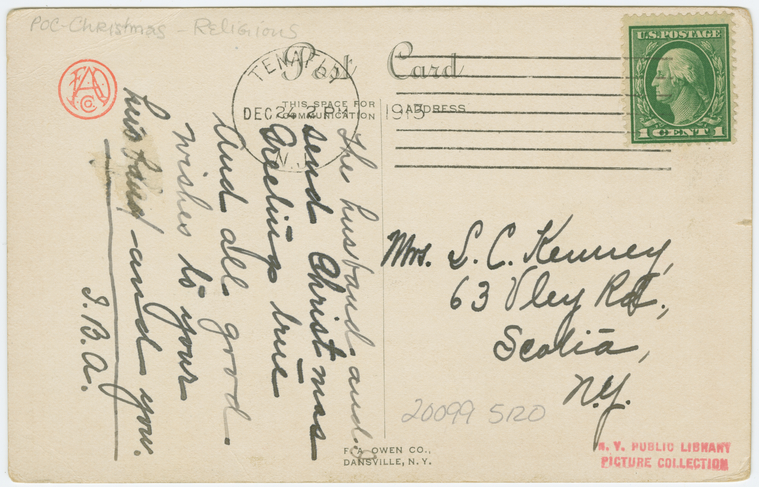 POC-Christmas - Religious
Post Card
TENAFLY
DEC 24 2 PM 1913
N.J.
THIS SPACE FOR
COMMUNICATION
ADDRESS
U.S. POSTAGE
1 CENT 1
FAO
Co.
The husband and
send Christmas
Greetings true
And all good
wishes to your
husband and you.
I.B.A.
Mrs. L. C. Kenney,
63 Vley Rd.,
Scotia,
N.Y.
20099 5120
F. A. OWEN CO.,
DANSVILLE, N. Y.
N. Y. PUBLIC LIBRARY
PICTURE COLLECTION